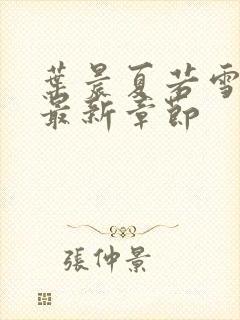 葉晨夏若雪
最新章節
張仲景